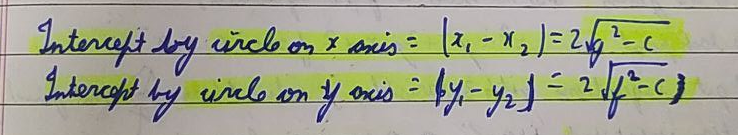 Intercept by circle on x axis = |x₁ - x₂| = 2√g² - c
Intercept by circle on y axis = |y₁ - y₂| = 2√f² - c